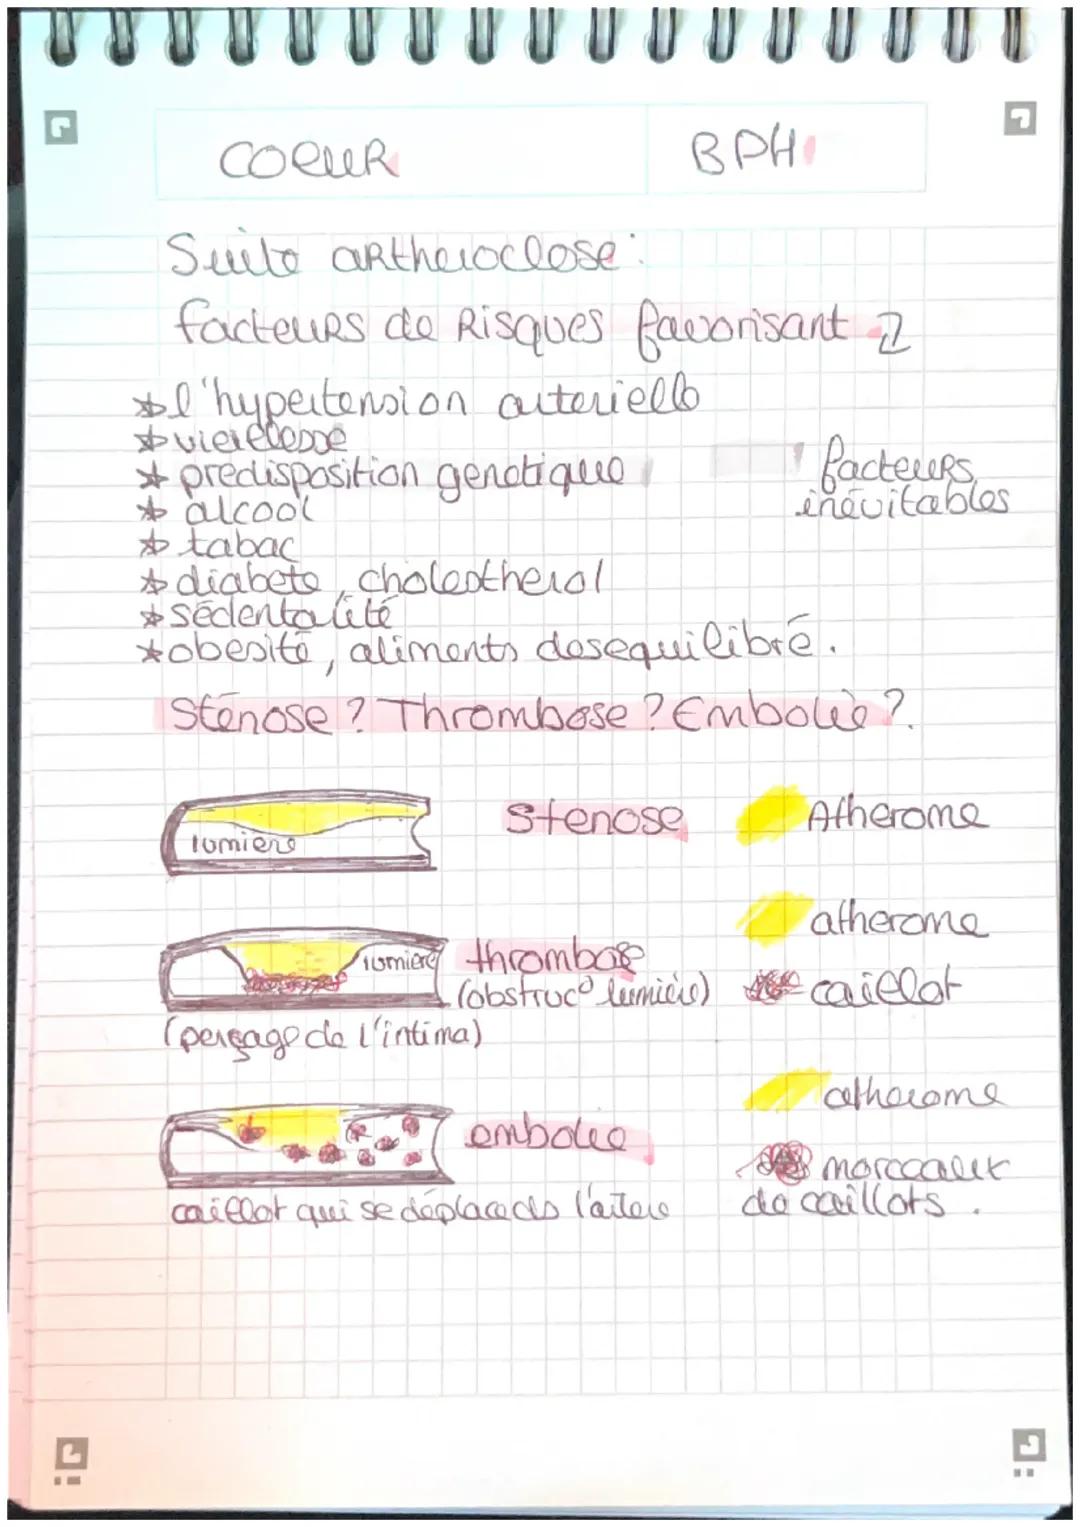 COEUR
BPH
Suite artheroclose:
facteurs de Risques favorisant
l'hypertension arterielle
vieiellesse
predisposition genetique
facteurs
inévitables
alcool
tabac
diabete, cholestherol
sédentalité
obesité, aliments desequilibré.
Sténose ? Thrombose ? Embolie ?
Stenose
Atherome
lumiere
atherome
lumiere
thrombose
(obstruc° lumière)
caillot
(perçage de l'intima)
atherome
embolie
morceaux
de caillots.
caillot qui se déplace ds l'artere